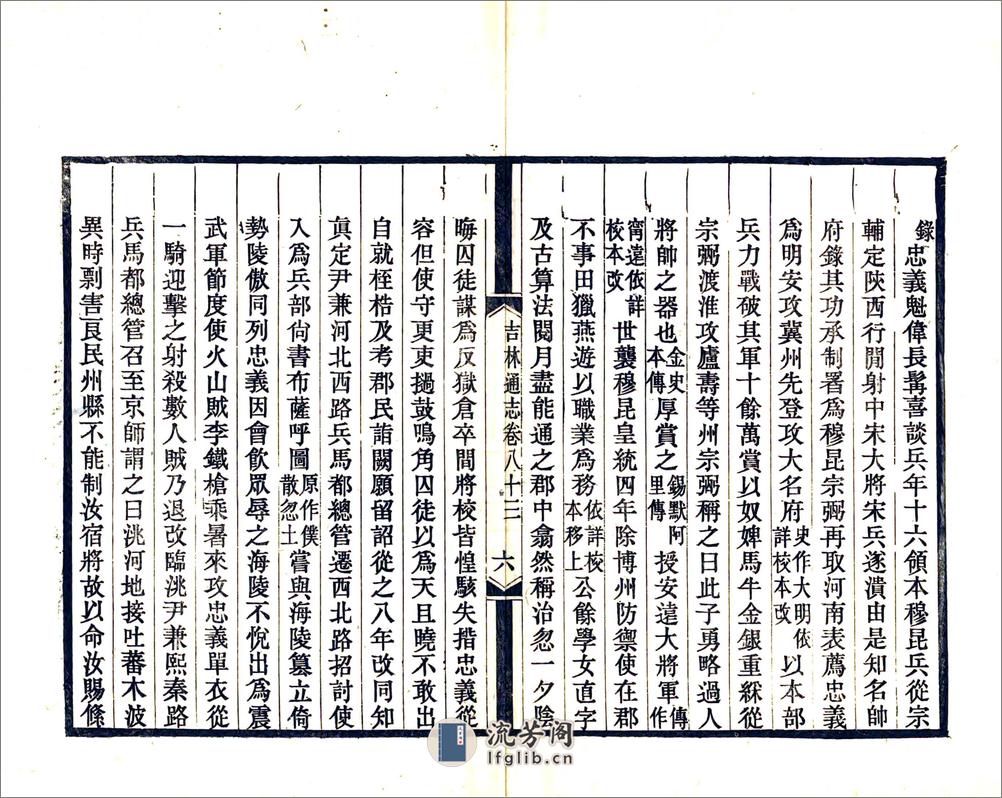 錄忠義魁偉長髯喜談兵年十六領本穆昆兵從宗
輔定陝西行閒射中宋大將宋兵遂潰由是知名帥
府錄其功承制署爲穆昆宗弼再取河南表薦忠義
爲明安攻冀州先登攻大名府史作大明依詳校本改以本部
兵力戰破其軍十餘萬賞以奴婢馬牛金銀重綵從
宗弼渡淮攻廬壽等州宗弼稱之曰此子勇略過人
將帥之器也金史本傳厚賞之錫默阿里傳授安遠大將軍傳作
甯遠依詳校本改世襲穆昆皇統四年除博州防禦使在郡
不事田獵燕遊以職業爲務依詳校本移上公餘學女直字
及古算法閱月盡能通之郡中翕然稱治忽一夕陰
吉林通志卷八十三 六
晦囚徒謀爲反獄倉卒間將校皆惶駭失措忠義從
容但使守更吏撾鼓鳴角囚徒以爲天且曉不敢出
自就桎梏及考郡民詣闕願留詔從之八年改同知
眞定尹兼河北西路兵馬都總管遷西北路招討使
入爲兵部尙書布薩呼圖原作僕散忽土嘗與海陵篡立倚
勢陵傲同列忠義因會飲眾辱之海陵不悅出爲震
武軍節度使火山賊李鐵槍乘暑來攻忠義單衣從
一騎迎擊之射殺數人賊乃退改臨洮尹兼熙秦路
兵馬都總管召至京師謂之曰洮河地接吐蕃木波
異時剽害良民州縣不能制汝宿將故以命汝賜條
流芳阁
lfglib.cn